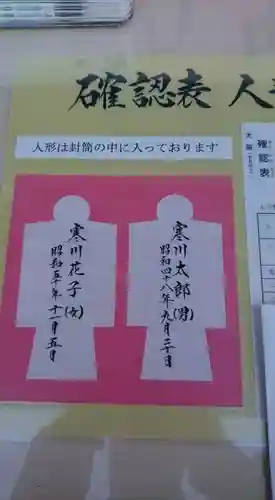 確認表 人
人形は封筒の中に入っております
寒川太郎(男)
昭和四十八年九月二十日
寒川花子(女)
昭和五十年十一月五日
大祓
確認表